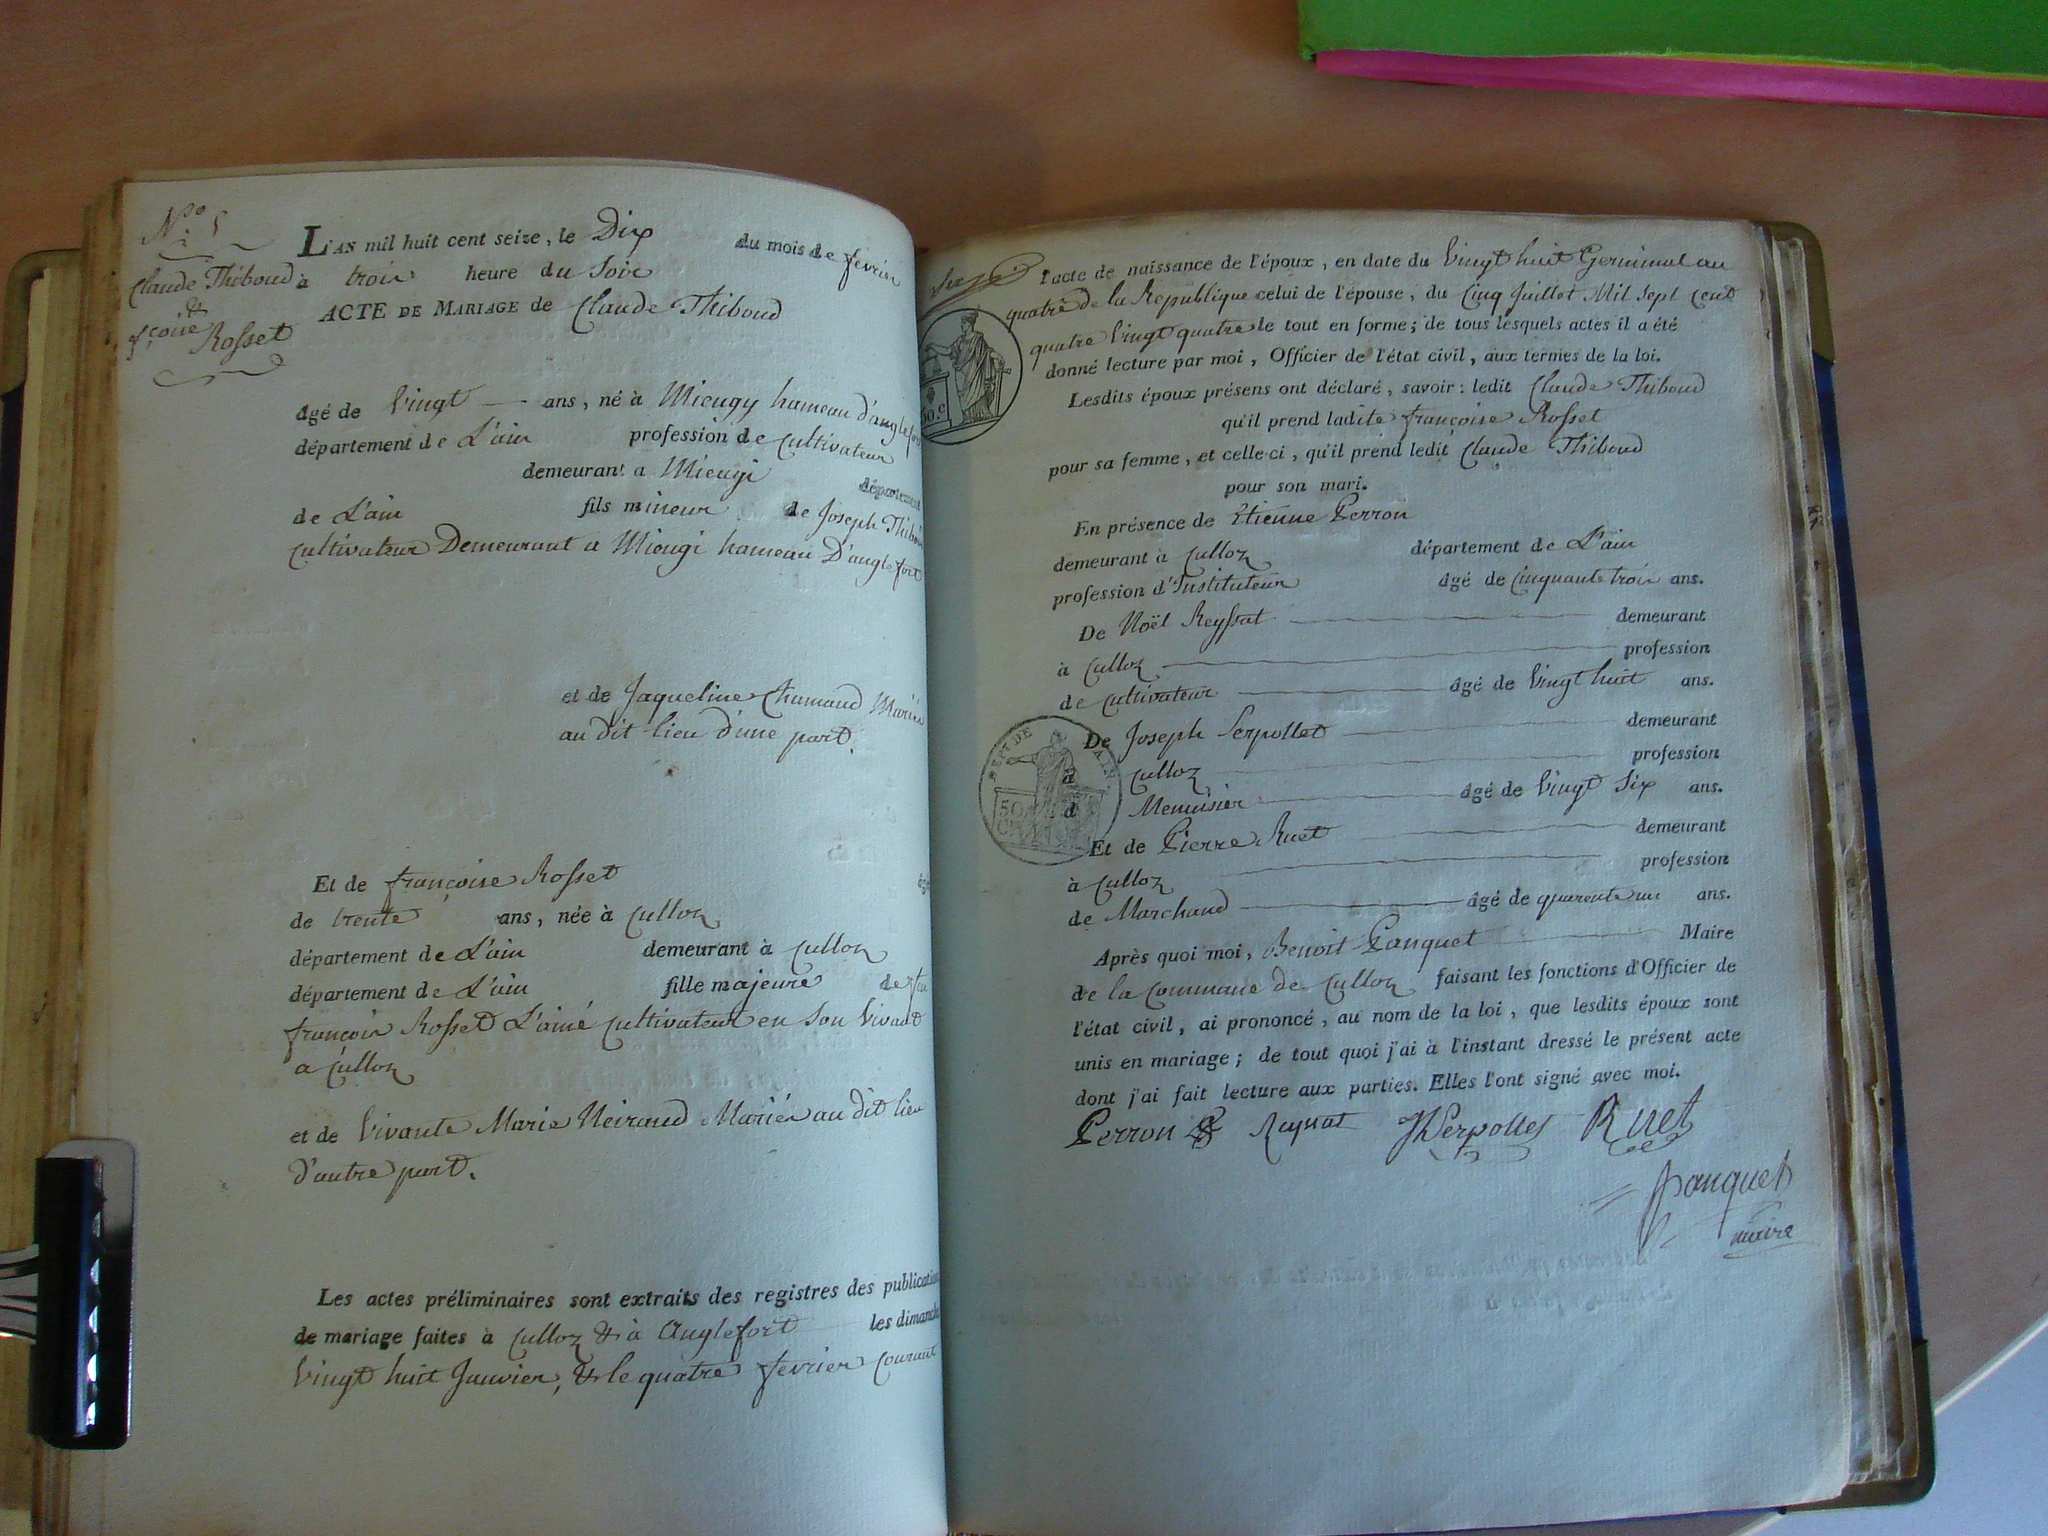 N.º 5
Claude Thiboud
&
f.çoise
Rosset
L'AN mil huit cent seize, le Dix du mois de fevrier
à trois heure du Soir
ACTE DE MARIAGE de Claude Thiboud
âgé de vingt ans, né à Mieugy hameau d'anglefort
département de L'ain profession de cultivateur
demeurant a Mieugi département
de L'ain fils mineur de Joseph Thiboud
cultivateur Demeurant a Mieugi hameau D'anglefort
et de Jaqueline Chamaud Mariés
au dit lieu d'une part.
Et de françoise Rosset âgé
de trente ans, née à culloz
département de L'ain demeurant à culloz
département de L'ain fille majeure de fu
françois Rosset L'ainé cultivateur en son vivant
a culloz
et de vivante Marie Neiraud Mariés au dit lieu
d'autre part.
Les actes préliminaires sont extraits des registres des publications
de mariage faites à culloz & à anglefort les dimanche
vingt huit Janvier, & le quatre fevrier courant
l'acte de naissance de l'époux, en date du vingt huit Germinal an
quatre de la Republique celui de l'épouse, du cinq Juillet Mil Sept cent
quatre vingt quatre le tout en forme; de tous lesquels actes il a été
donné lecture par moi, Officier de l'état civil, aux termes de la loi.
Lesdits époux présens ont déclaré, savoir: ledit Claude Thiboud
qu'il prend ladite françoise Rosset
pour sa femme, et celle-ci, qu'il prend ledit Claude Thiboud
pour son mari.
En présence de Etienne Perron
demeurant à culloz département de L'ain
profession d'Instituteur âgé de cinquante trois ans.
De Noël Reyssat demeurant
à culloz profession
de cultivateur âgé de vingt huit ans.
De Joseph Serpollet demeurant
à culloz profession
d Menuisier âgé de vingt six ans.
Et de Pierre Ruet demeurant
à culloz profession
de Marchand âgé de quarente un ans.
Après quoi moi, Benoit Panquet Maire
de la commune de Culloz faisant les fonctions d'Officier de
l'état civil, ai prononcé, au nom de la loi, que lesdits époux sont
unis en mariage; de tout quoi j'ai à l'instant dressé le présent acte
dont j'ai fait lecture aux parties. Elles l'ont signé avec moi.
Perron Reyssat JSerpollet Ruet
Panquet
maire
50.c
DEPT DE AIN
50